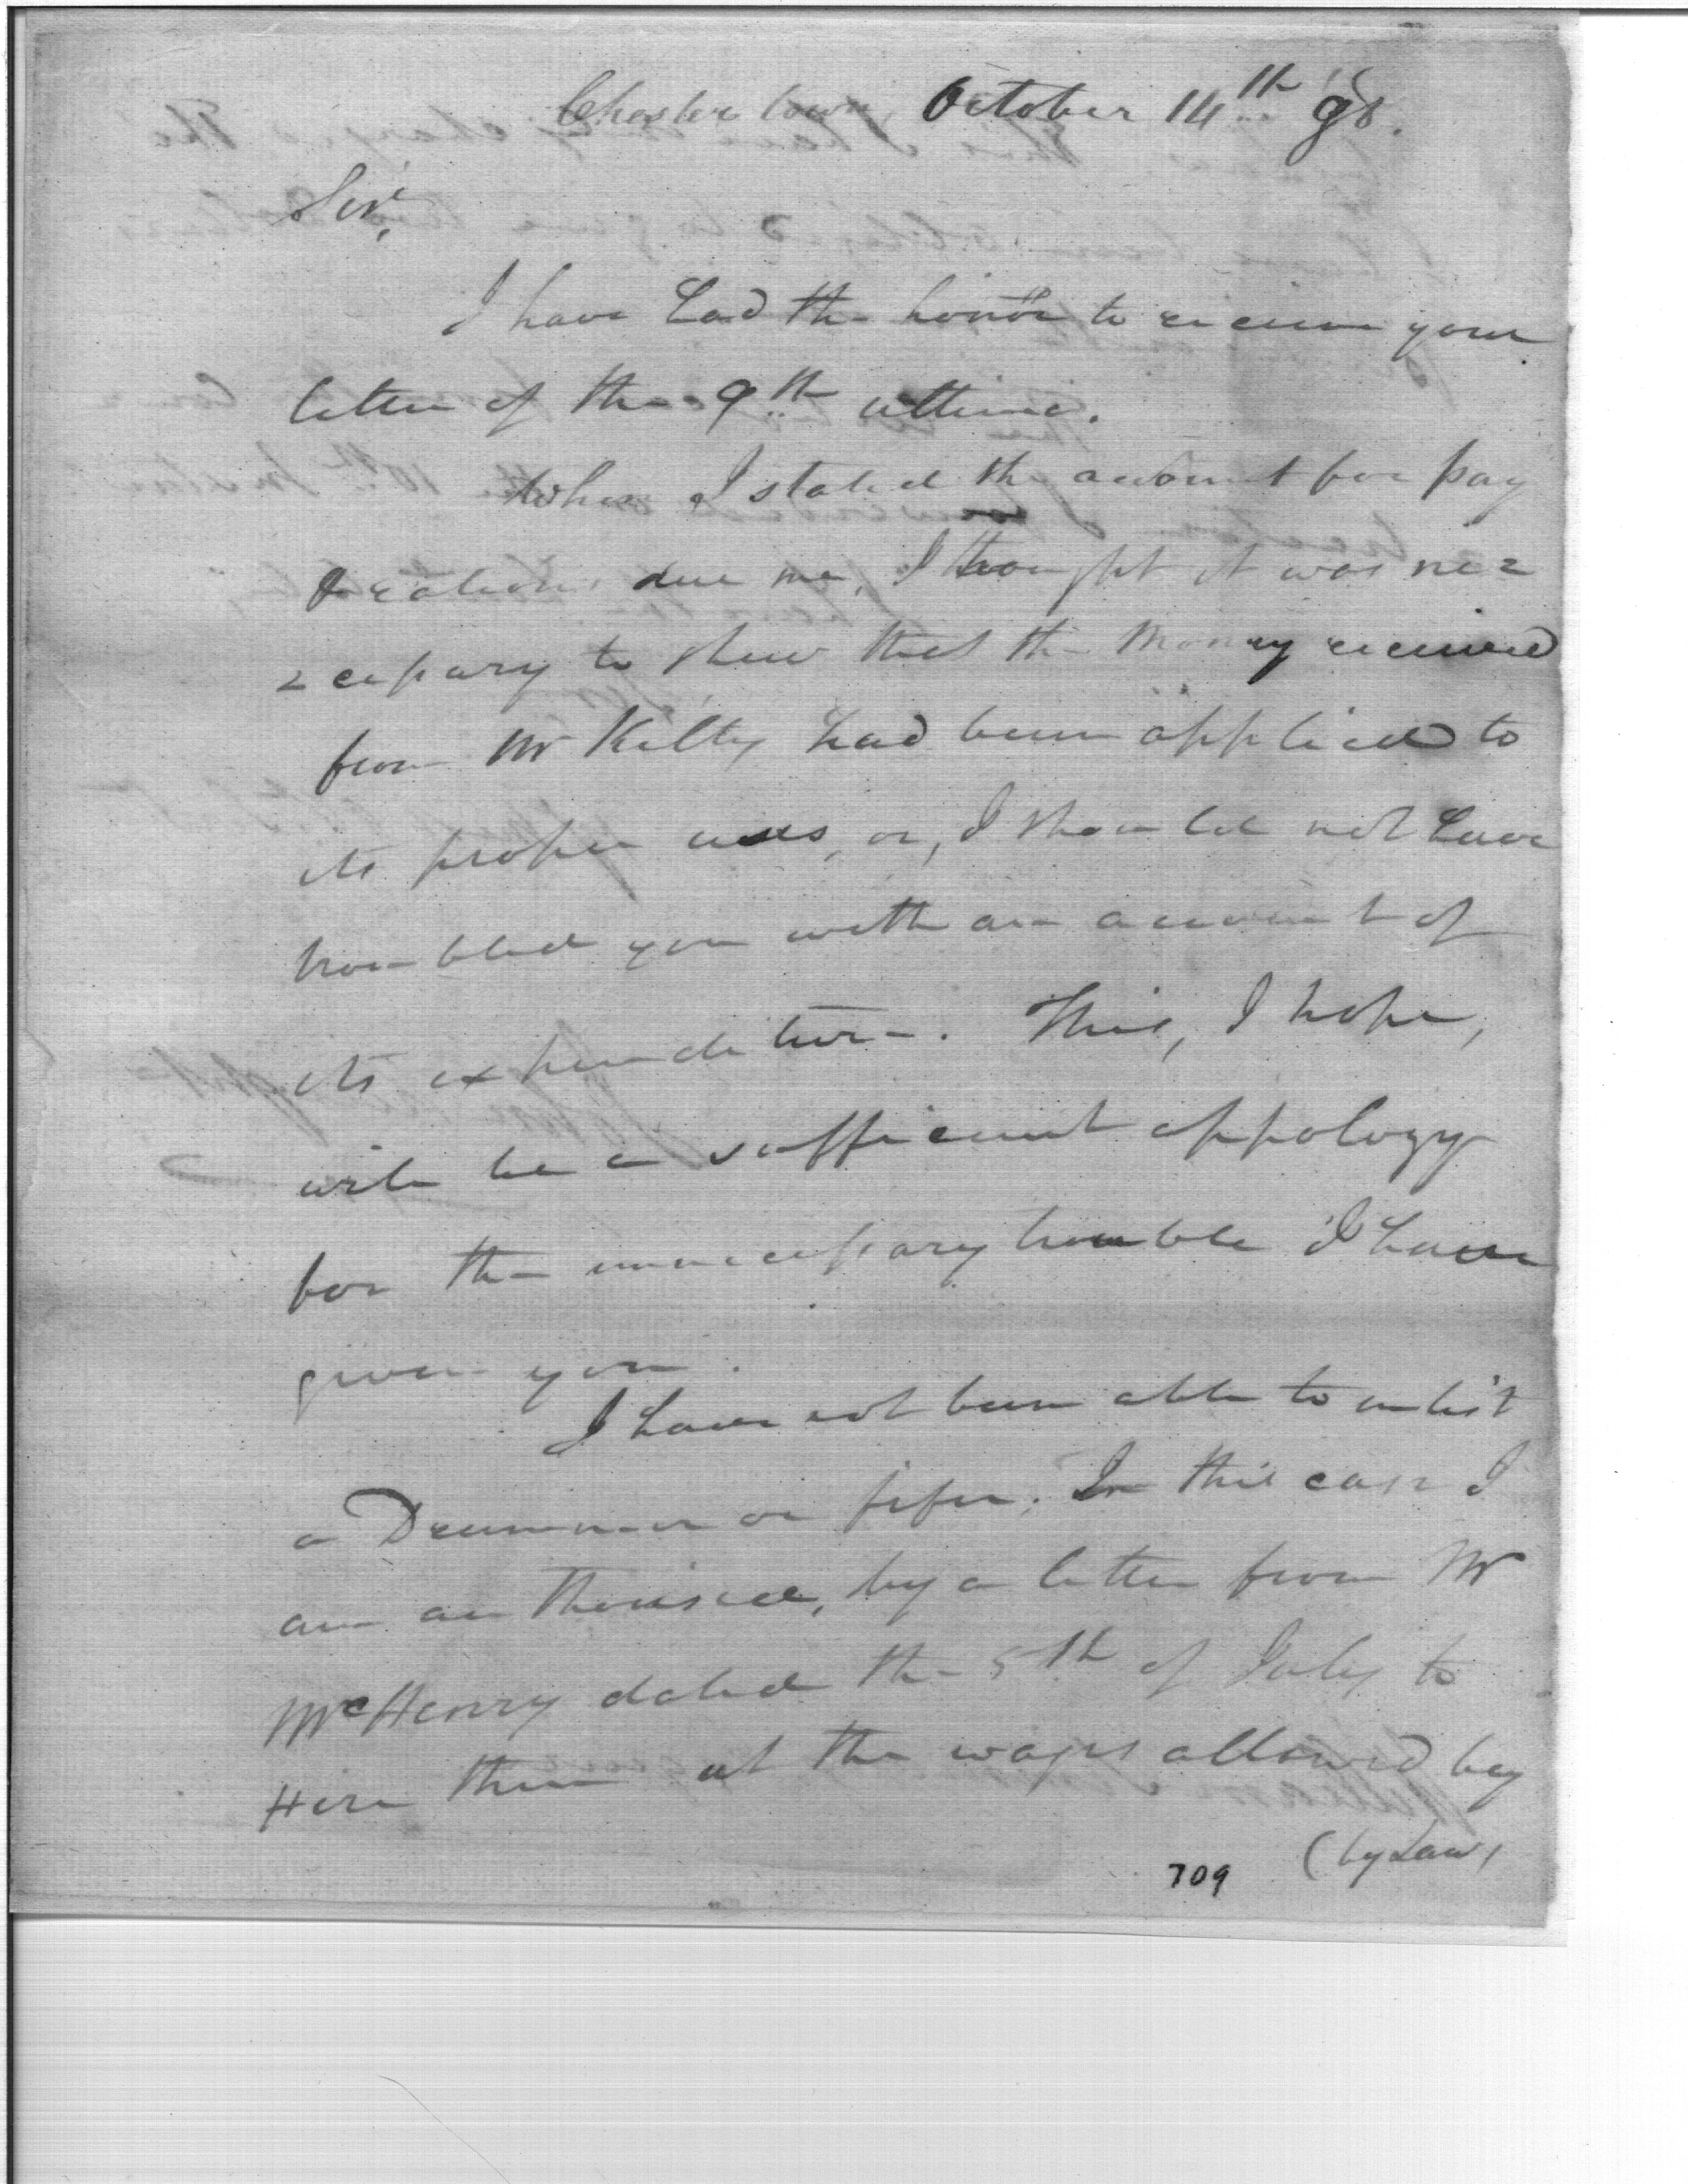 Chester town, October 14th 98.
Sir,
I have had the honor to receive your
letter of the 9th ultimo.
When I stated the account for pay
& rations due me, I thought it was ne=
=cessary to shew that the money received
from Mr Kilty had been applied to
its proper uses, or, I should not have
troubled you with an account of
its expenditure. This, I hope,
will be a sufficient appology
for the unnecessary trouble I have
given you.
I have not been able to inlist
a Drummer or fifer. In this case I
am authorised, by a letter from Mr
McHenry dated the 5th of July to
Hire them at the wages allowed by
(by Law,
709